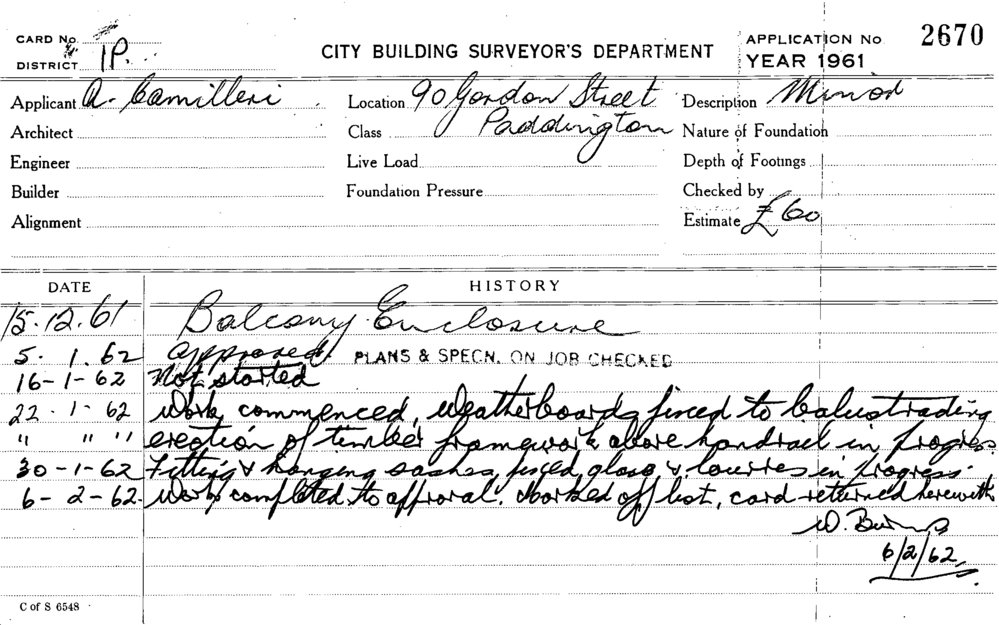 CARD No.
DISTRICT 1P.
CITY BUILDING SURVEYOR'S DEPARTMENT
APPLICATION No. 2670
YEAR 1961
Applicant A. Camilleri
Location 90 Gordon Street
Description Minor
Architect
Class Paddington
Nature of Foundation
Engineer
Live Load
Depth of Footings
Builder
Foundation Pressure
Checked by
Alignment
Estimate £60
DATE HISTORY
15.12.61 Balcony Enclosure
5. 1. 62 Approved. PLANS & SPECN. ON JOB CHECKED
16-1-62 Not started
22. 1- 62 Work commenced, Weatherboards fixed to balustrading
" " " erection of timber framework above handrail in progress
30-1-62 Fitting & hanging sashes, fixed glass & louvres in progress.
6-2-62. Work completed to approval. Marked off list, card returned herewith
W. Burns
6/2/62.
C of S 6548